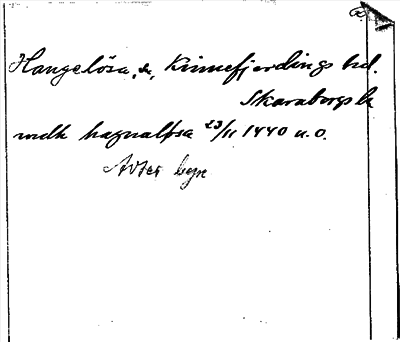 Hangelösa, sn, Kinnefjerdings hd.
Skaraborgs l.
undh hagnalösa 23/11 1440 u.o.
Avser byn